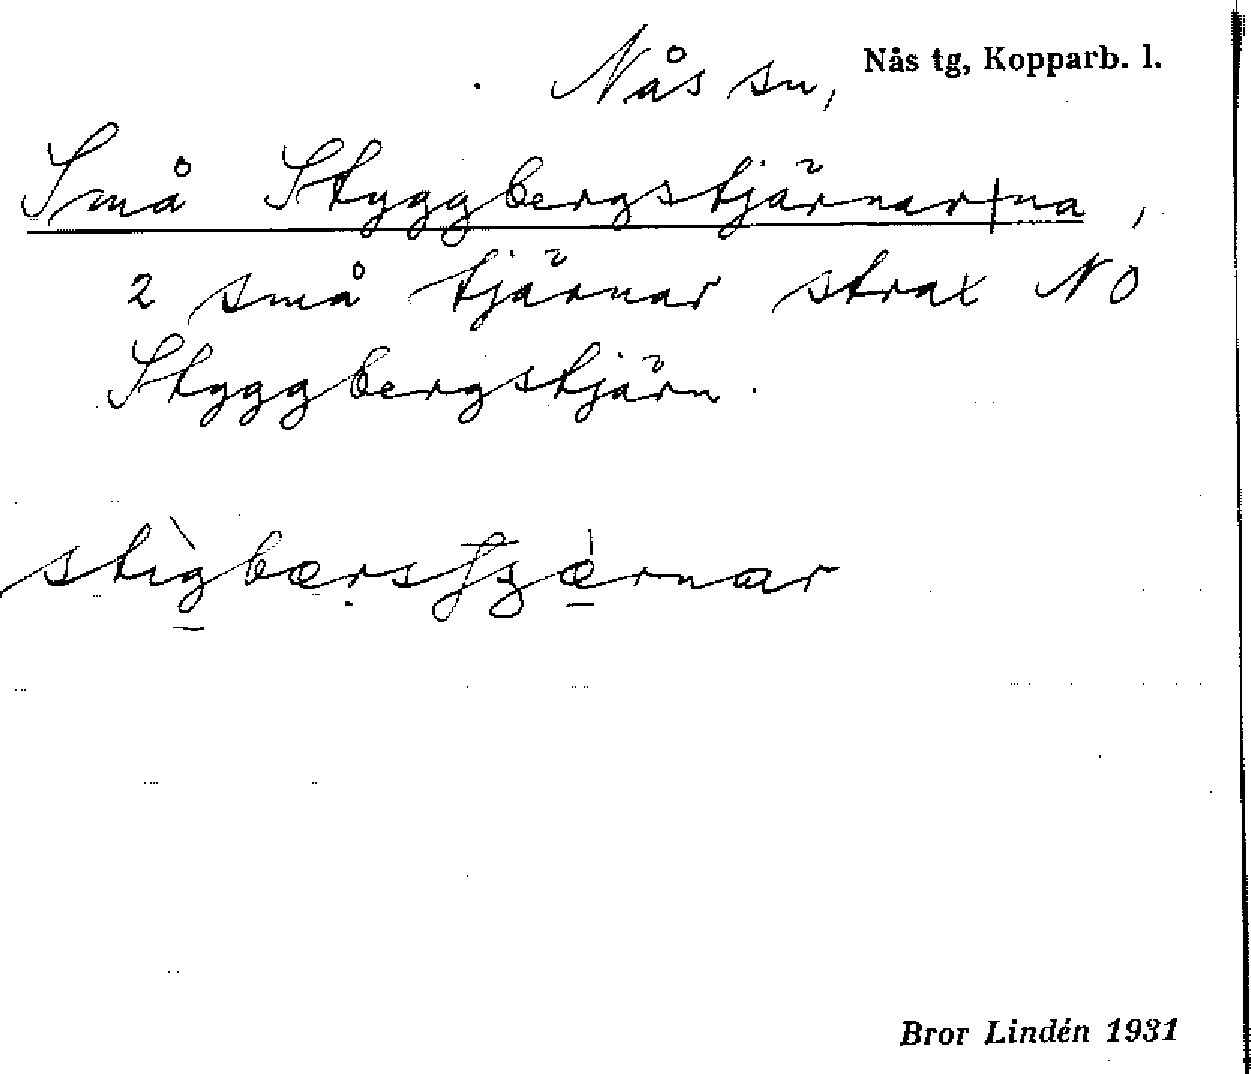 Nås sn, Nås tg, Kopparb. l.
Små Styggbergstjärnar+na,
2 små tjärnar strax NO
Styggbergstjärn.
Bror Lindén 1931